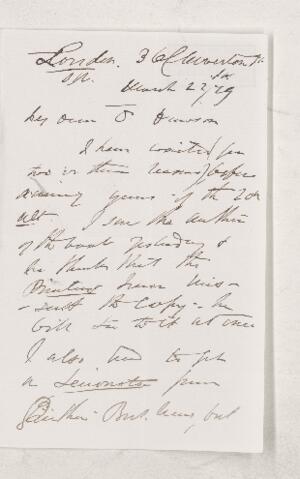 London. 36 Claverton St
SW.
March 22/79
My dear Dr Dawson
I have waited for
two or three reasons before
answering yours of the 20th
ult. I saw the author
of the book yesterday &
he thinks that the
Printers have mis-
sent the copy - he
will see to it at once
I also tried to get
a
from
Brit. Mus, but